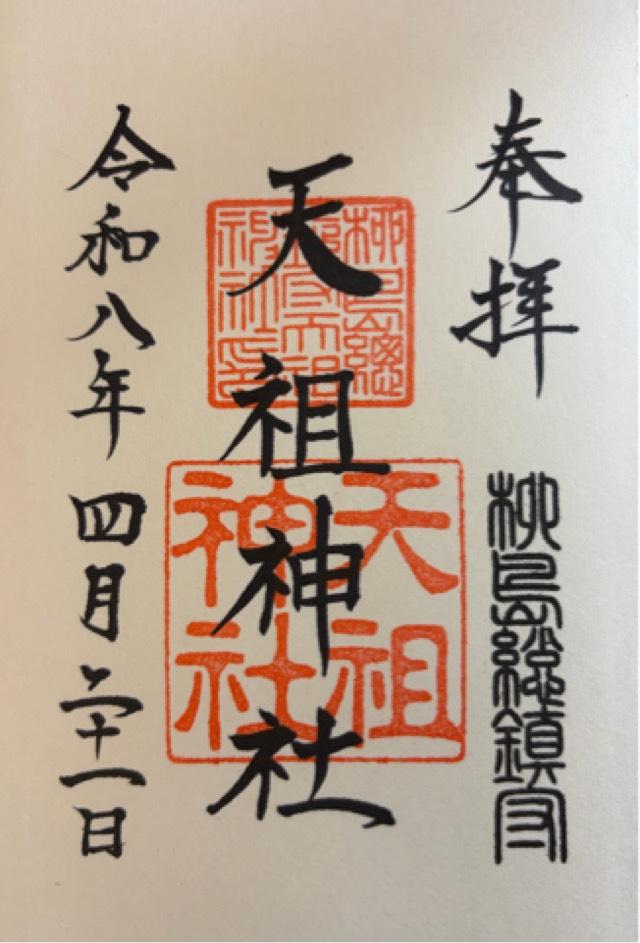 奉拝
柳島總鎮守
天祖神社
柳島總鎮守天祖神社印
天祖神社
令和八年四月二十一日